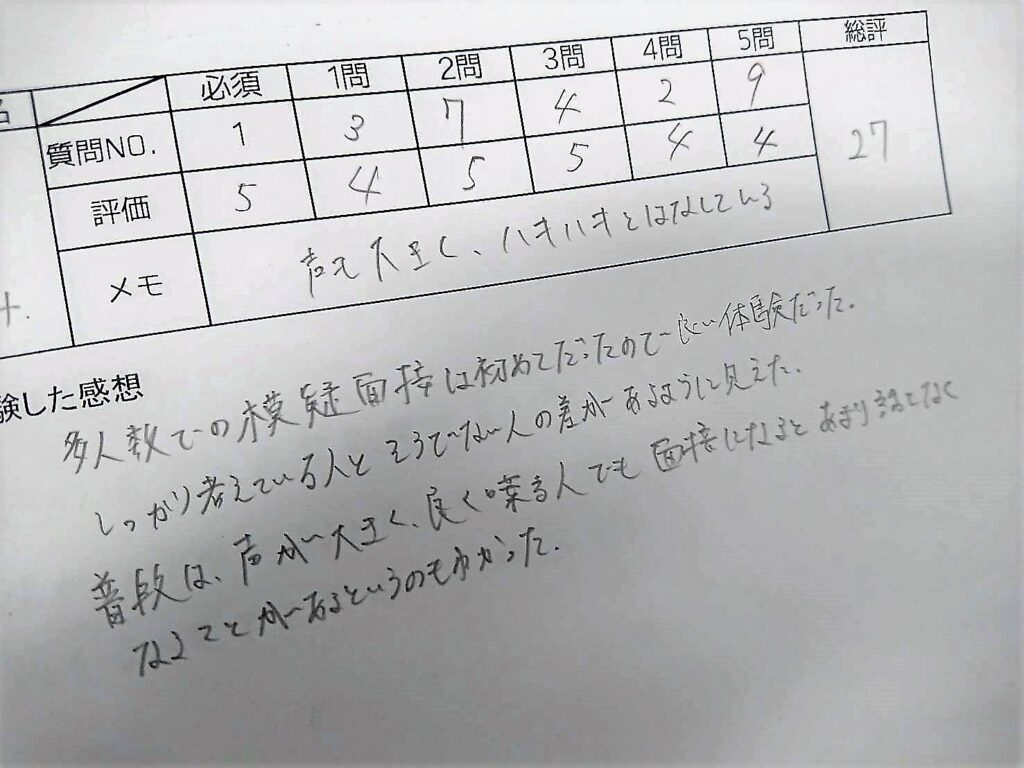 名 必須 1問 2問 3問 4問 5問 総評
質問NO. 1 3 7 4 2 9 27
評価 5 4 5 5 4 4
メモ 声も大きく、ハキハキとはなしている
験した感想
多人数での模疑面接は初めてだったので良い体験だった.
しっかり考えている人とそうでない人の差があるように見えた.
普段は、声が大きく、良く喋る人でも面接になるとあまり話さなく
なることがあるというのもわかった.